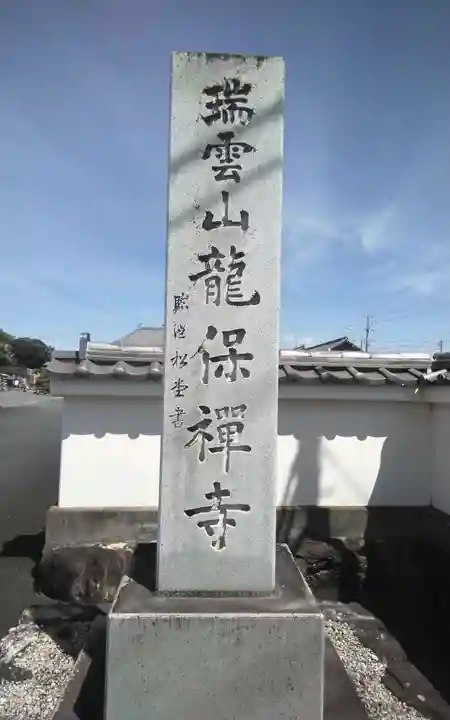 瑞雲山龍保禪寺
松堂書